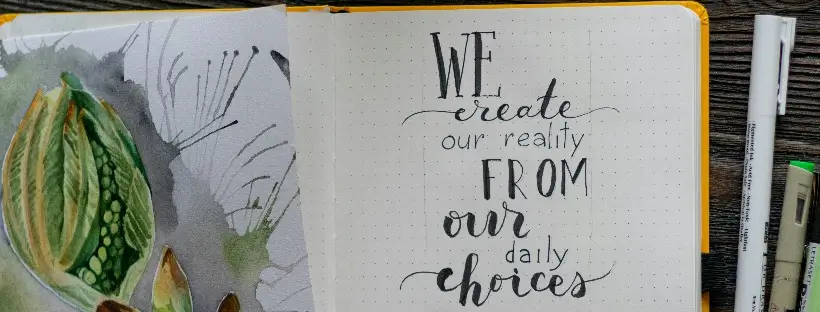 WE
create
our reality
FROM
our
daily
choices